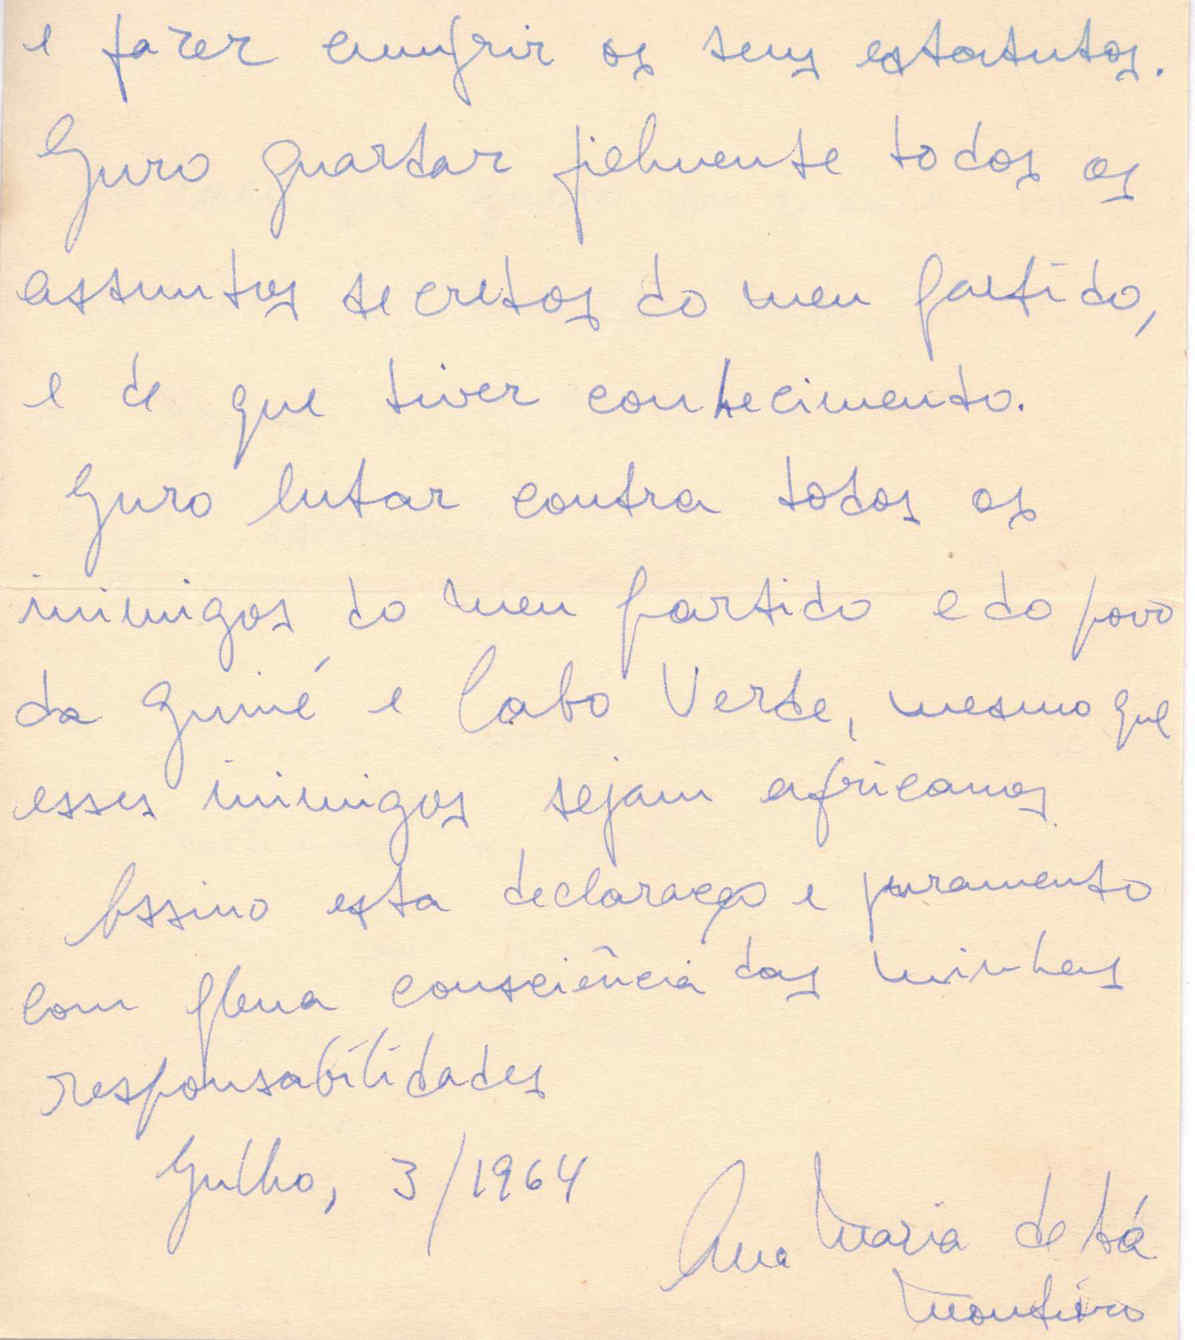 e fazer cumprir os seus estatutos.
Juro guardar fielmente todos os
assuntos secretos do meu partido,
e de que tiver conhecimento.
Juro lutar contra todos os
inimigos do meu partido e do povo
da Guiné e Cabo Verde, mesmo que
esses inimigos sejam africanos.
Assino esta declaração e juramento
com plena consciência das minhas
responsabilidades
Julho, 3/1964
Ana Maria de Sá
Monteiro